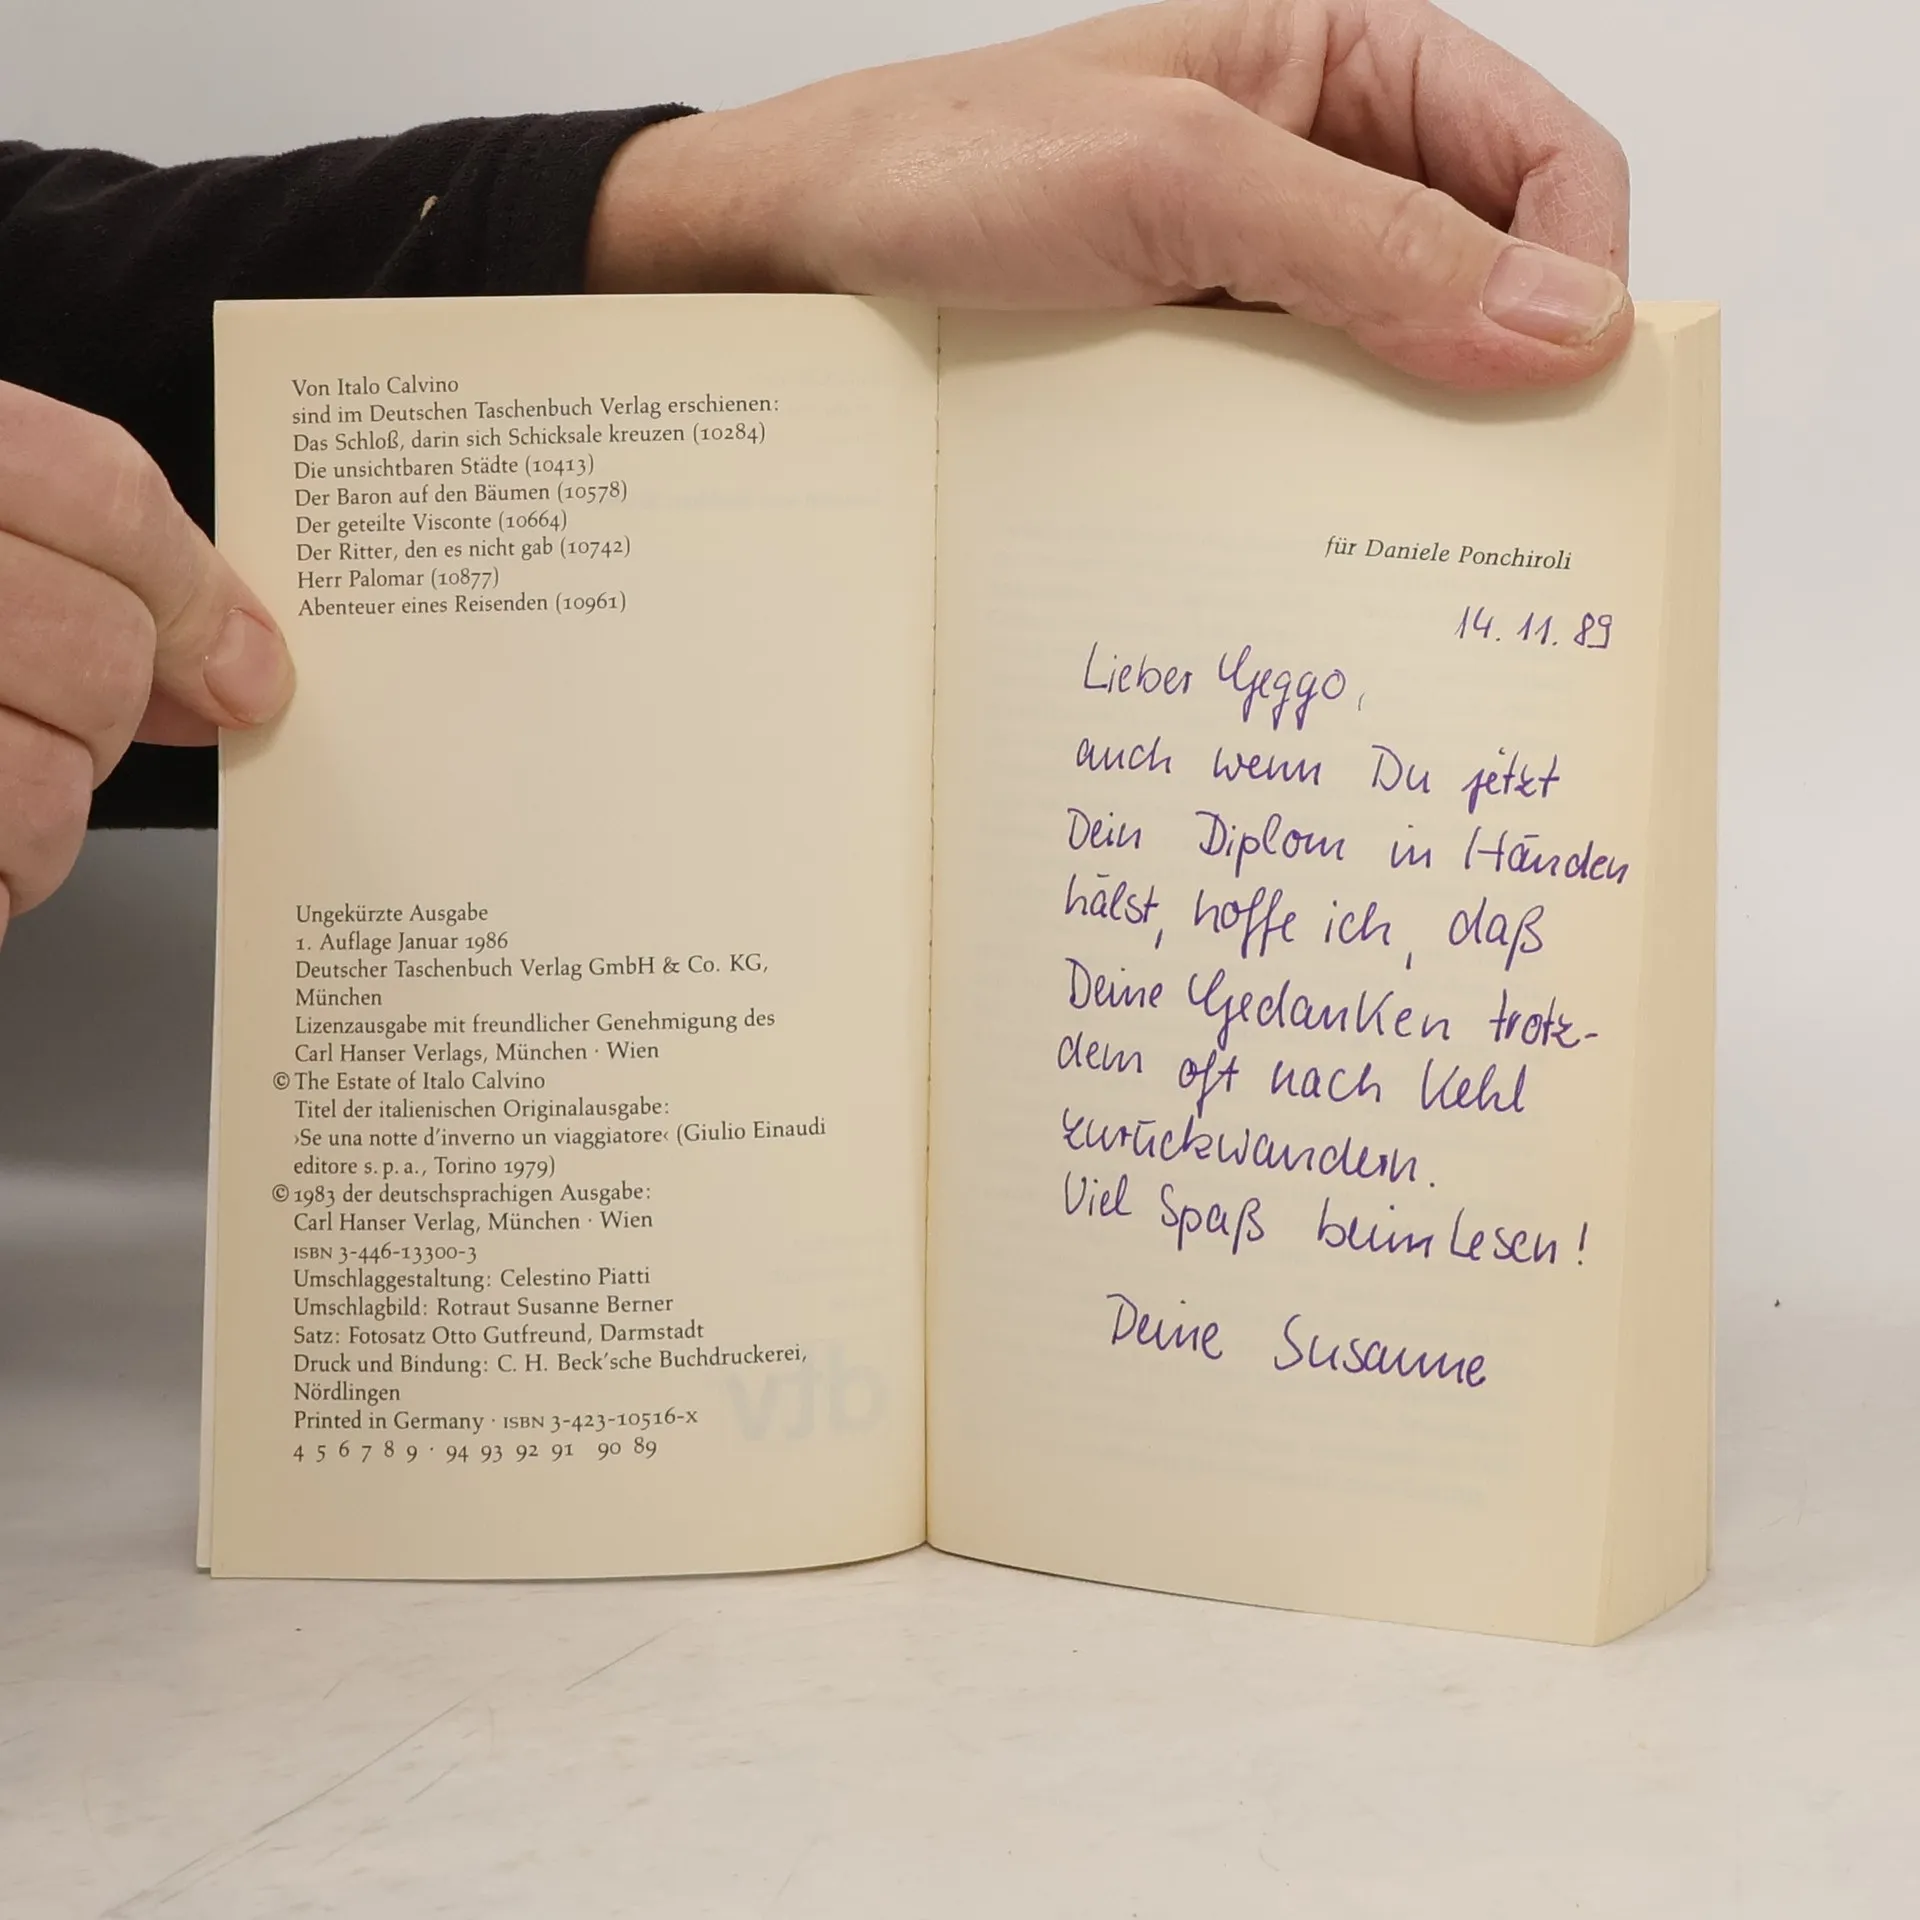 Von Italo Calvino
sind im Deutschen Taschenbuch Verlag erschienen:
Das Schloß, darin sich Schicksale kreuzen (10284)
Die unsichtbaren Städte (10413)
Der Baron auf den Bäumen (10578)
Der geteilte Visconte (10664)
Der Ritter, den es nicht gab (10742)
Herr Palomar (10877)
Abenteuer eines Reisenden (10961)
Ungekürzte Ausgabe
1. Auflage Januar 1986
Deutscher Taschenbuch Verlag GmbH & Co. KG,
München
Lizenzausgabe mit freundlicher Genehmigung des
Carl Hanser Verlags, München · Wien
© The Estate of Italo Calvino
Titel der italienischen Originalausgabe:
›Se una notte d'inverno un viaggiatore‹ (Giulio Einaudi
editore s. p. a., Torino 1979)
© 1983 der deutschsprachigen Ausgabe:
Carl Hanser Verlag, München · Wien
ISBN 3-446-13300-3
Umschlaggestaltung: Celestino Piatti
Umschlagbild: Rotraut Susanne Berner
Satz: Fotosatz Otto Gutfreund, Darmstadt
Druck und Bindung: C. H. Beck'sche Buchdruckerei,
Nördlingen
Printed in Germany · ISBN 3-423-10516-X
4 5 6 7 8 9 · 94 93 92 91 90 89
für Daniele Ponchiroli
14. 11. 89
Lieber Geggo,
auch wenn Du jetzt
Dein Diplom in Händen
hälst, hoffe ich, daß
Deine Gedanken trotz-
dem oft nach Kehl
zurückwandern.
Viel Spaß beim Lesen!
Deine Susanne